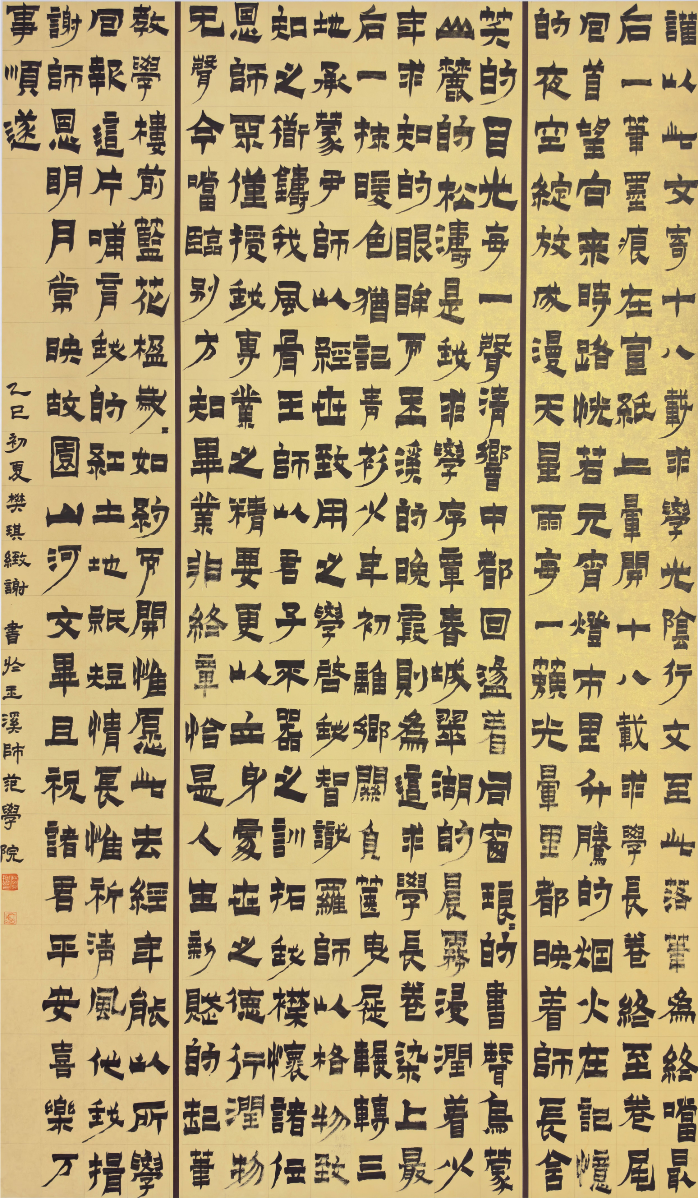 謹以此文寄十八載求學光陰行文至此落筆為終噹最
后一筆墨痕在宣紙上暈開十八載求學長卷終至卷尾
回首望向來時路恍若元宵燈市里升騰的烟火在記憶
的夜空綻放成漫天星雨每一簇光暈里都映着師長含
笑的目光每一聲清響中都回盪着同窗琅〻的書聲烏蒙
山麓的松濤是我求學序章春城翠湖的晨霧漫潤着少
年求知的眼眸而玉溪的晚霞則為這求學長卷染上最
后一抹暖色猶記青衫少年初離鄉關負篋曳屣輾轉三
地承蒙尹師以經世致用之學啓我智識羅師以格物致
知之術鑄我風骨王師以君子不器之訓拓我襟懷諸位
恩師不僅授我專業之精要更以立身處世之德行潤物
无聲今噹臨别方知畢業非終章恰是人生新賦的起筆
教學樓前藍花楹歲〻如約而開惟愿此去經年能以所學
回報這片哺育我的紅土地紙短情長惟祈清風代我捎
謝師恩明月常映故園山河文畢且祝諸君平安喜樂万
事順遂
乙巳初夏樊琪緻謝 書於玉溪師范學院